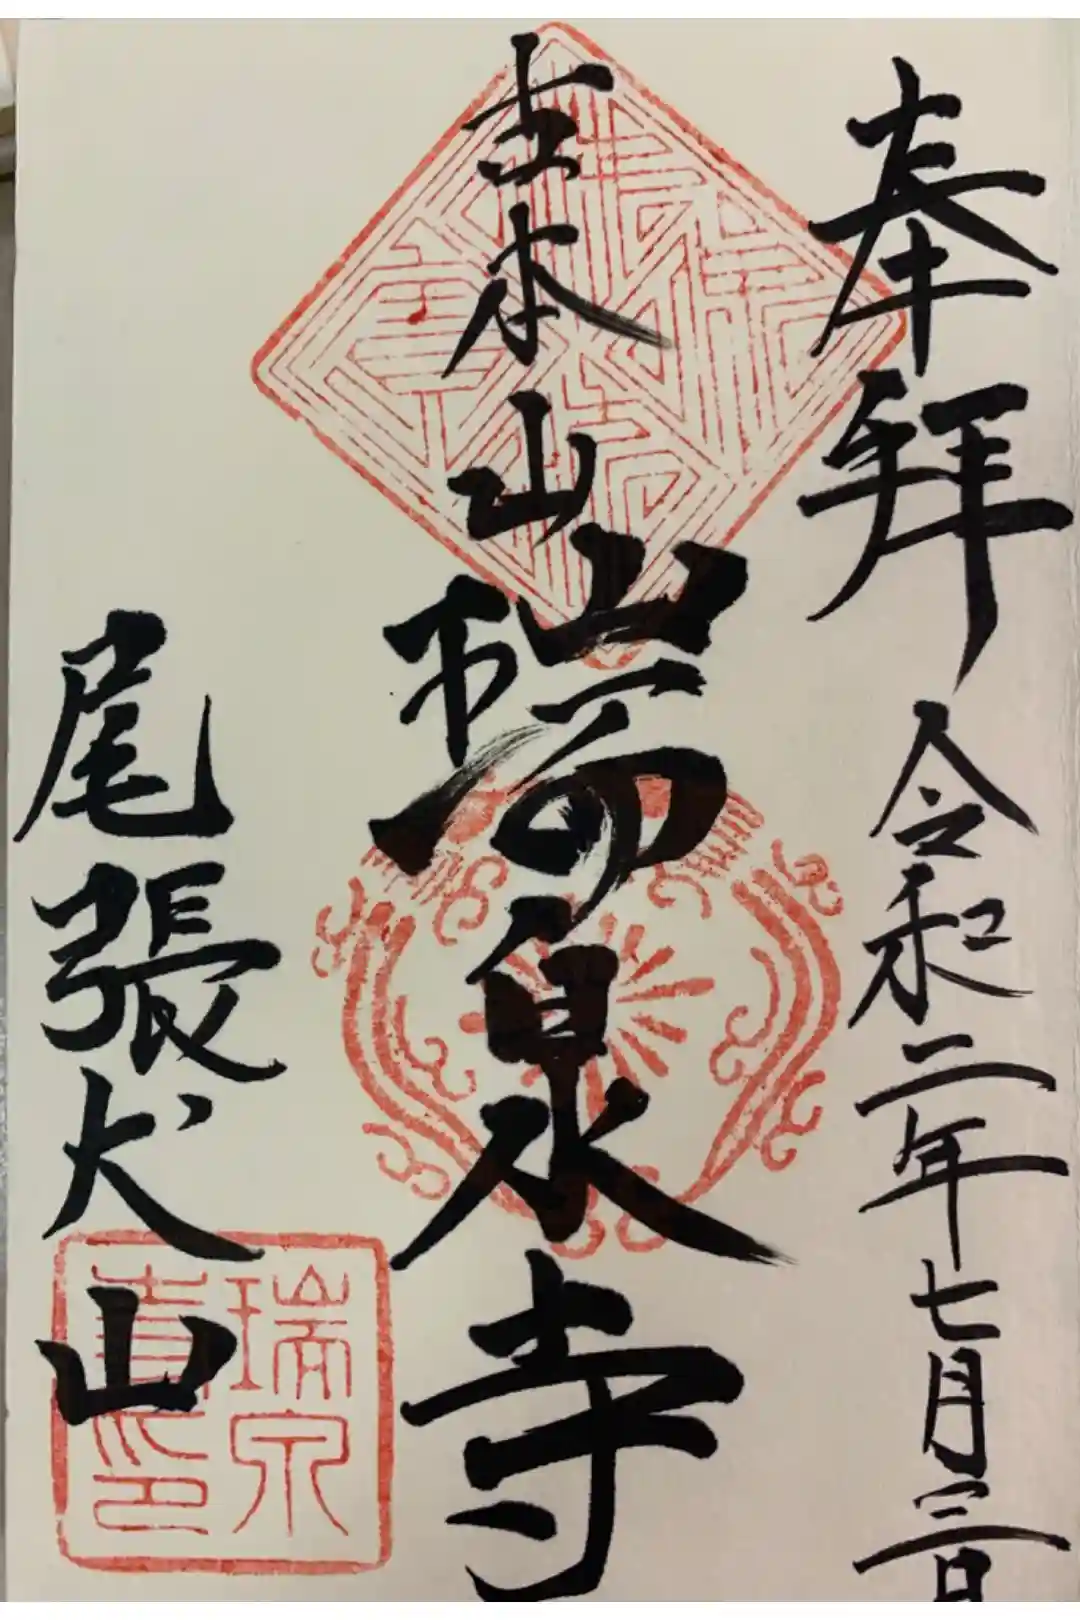 奉拝 令和二年七月三日
古本山
瑞泉寺
尾張犬山
瑞泉